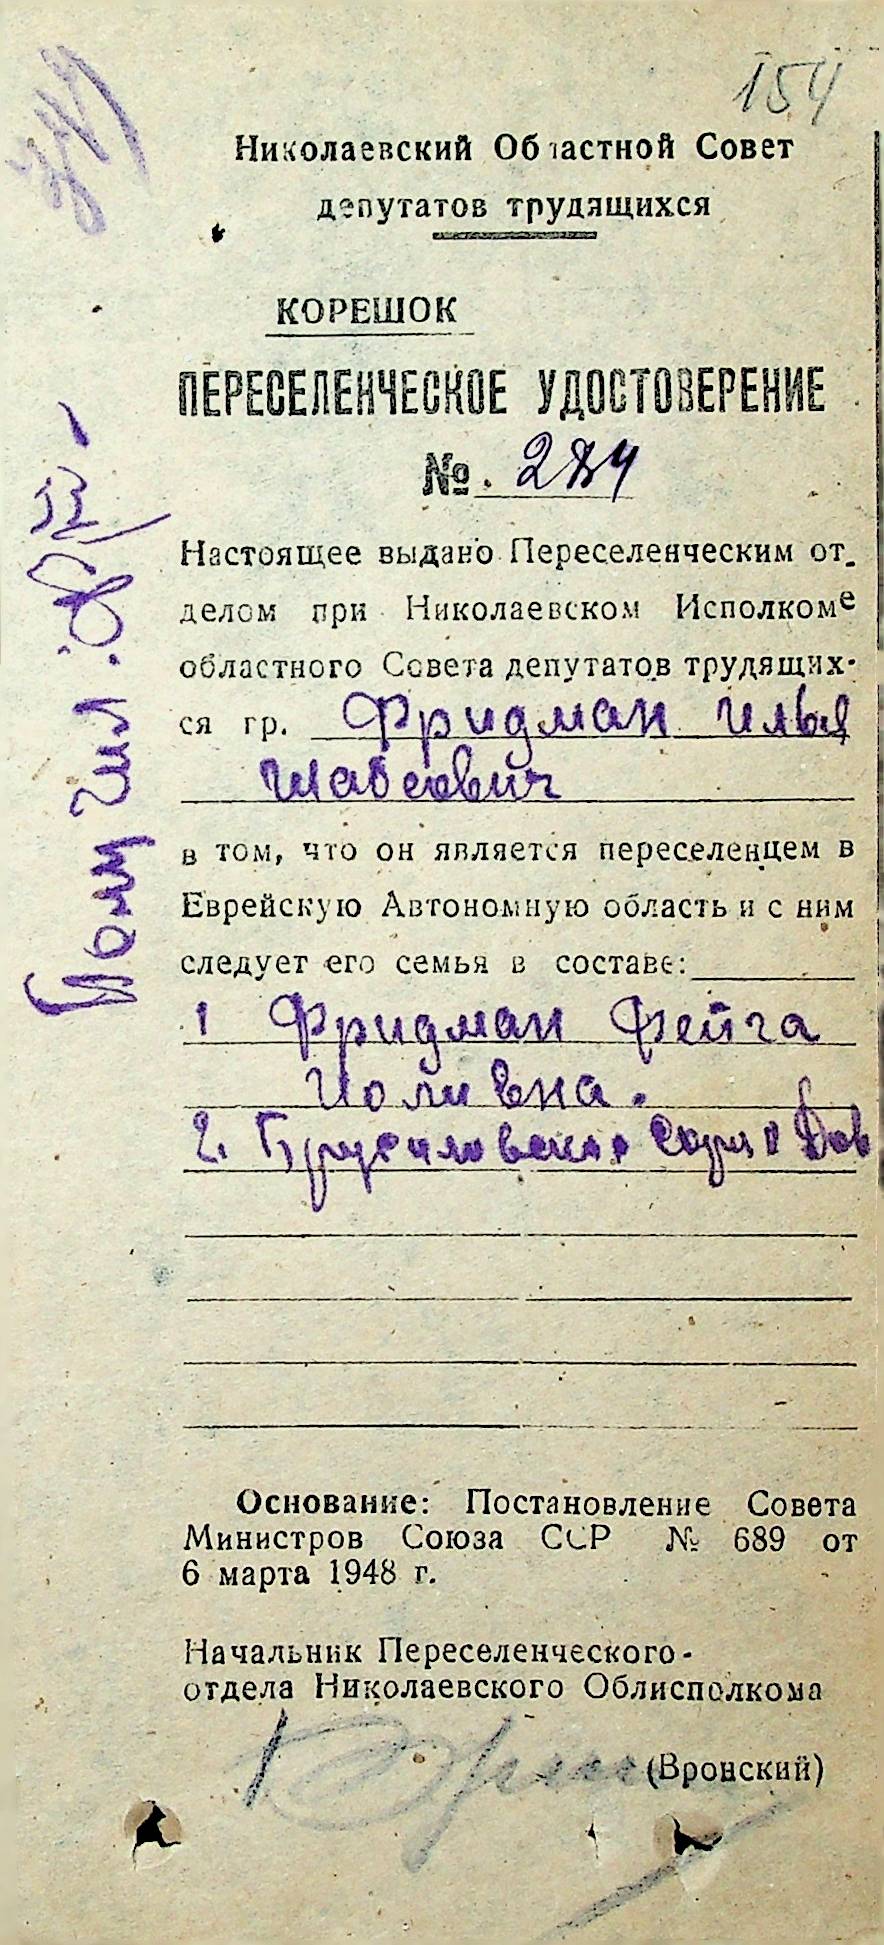 154
Николаевский Областной Совет
депутатов трудящихся
КОРЕШОК
ПЕРЕСЕЛЕНЧЕСКОЕ УДОСТОВЕРЕНИЕ
№ 284
Настоящее выдано Переселенческим от-
делом при Николаевском Исполкоме
областного Совета депутатов трудящих-
ся гр. Фридман Илья
Шабсевич
в том, что он является переселенцем в
Еврейскую Автономную область и с ним
следует его семья в составе:
1 Фридман Фейга
2. Брусиловская София Дов
Основание: Постановление Совета
Министров Союза ССР № 689 от
6 марта 1948 г.
Начальник Переселенческого
отдела Николаевского Облисполкома
(Вронский)